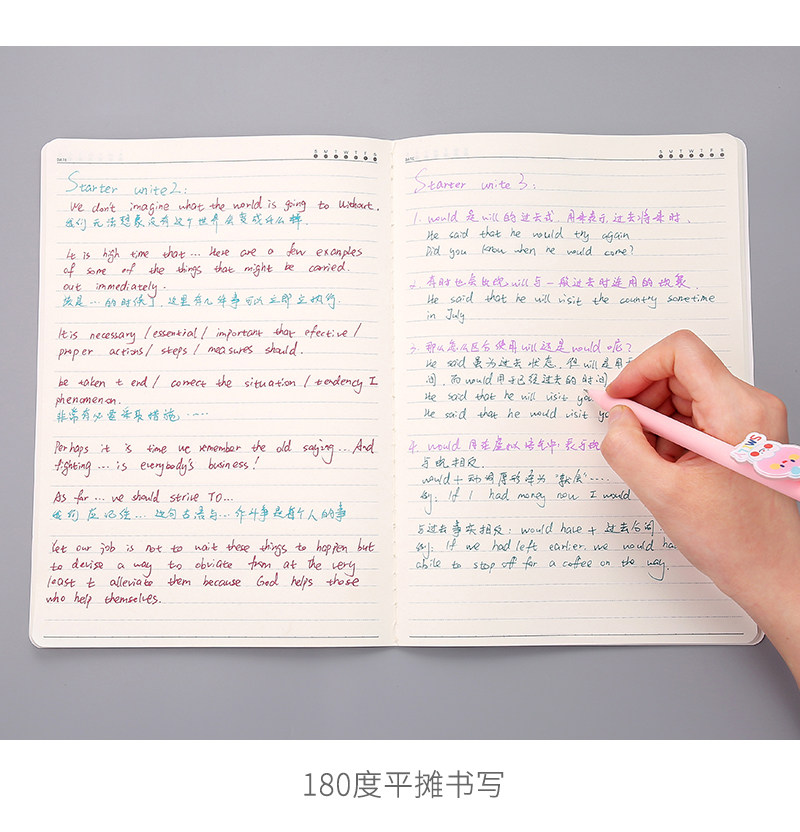 DATE
S M T W T F S
Starter unite 2:
We don't imagine what the world is going to without.
我们无法想象没有这个世界会变成什么样.
It is high time that... Here are a few examples
of some of the things that might be carried.
out immediately.
该是...的时候了, 这里有几件事可以立即立执行.
It is necessary / essential / important that efective /
proper actions / steps / measures should.
be taken t end / correct the situation / tendency I
phenomenon.
非常有必要采取措施.....
Perhaps it is time we remember the old saying... And
fighting... is everybody's business!
As far... we should strive TO...
我们应记住... 这句古语与...作斗争是每个人的事
Yet our job is not to wait these things to happen but
to devise a way to obviate from at the very
least t alleviate them because God helps those
who help themselves.
DATE
S M T W T F S
Starter unite 3:
1. would 是will的过去式 用来表示, 过去将来时.
He said that he would try again
Did you know when he would come?
2. 有时也会出现will与一般过去时连用的现象.
He said that he will visit the country sometime
in July
3. 那么怎么区分使用will还是would呢?
He said 虽为过去状态, 但will是用于
间, 而would用于已经过去的时间
He said that he will visit you
He said that he would visit yo
4. would 用在虚拟语气中, 表与现
与现相反.
would + 动词原形译为"就会"....
eg: If I had money now I would
与过去事实相反: would have + 过去分词...
eg: If we had left earlier. we would ha
abile to stop off for a coffee on the way.
180度平摊书写